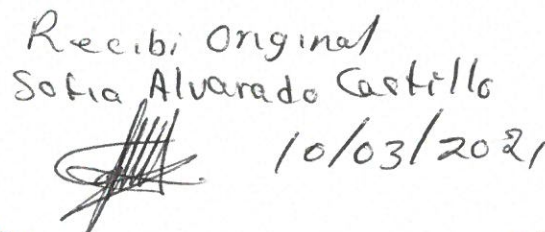 Recibi Original
Sofia Alvarado Castillo
10/03/2021